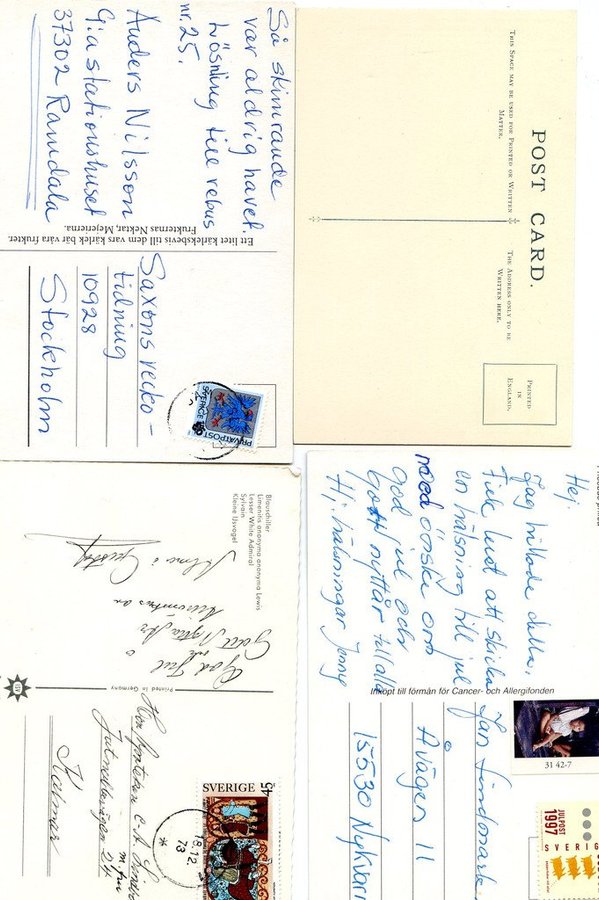 Så skimrande
var aldrig havet.
Lösning till rebus
nr. 25.
Anders Nilsson
G:a stationshuset
37302 Ramdala
Ett litet kärleksbevis till dem vars kärlek bär våra frukter.
Frukternas Nektar, Mejerierna.
Saxons vecko-
tidning
10928
Stockholm
SVERIGE
PRIVATPOST
POST CARD.
THIS SPACE MAY BE USED FOR PRINTED OR WRITTEN
MATTER.
THE ADDRESS ONLY TO BE
WRITTEN HERE.
PRINTED
IN
ENGLAND.
Blauschiller
Limenitis anonyma anonyma Lewis
Lesser White Admiral
Sylvain
Kleine IJsvogel
God Jul
och
Gott Nytt År
Printed in Germany
Kalmar
SVERIGE
45
18.12.
73
Hej.
Jag hittade detta,
fick lust att skicka
en hälsning till jul
med önska om
God jul och
Gott nyttår till alla
Hj. hälsningar Jenny
Inköpt till förmån för Cancer- och Allergifonden
Jan
Åvägen 11
15530 Nykvarn
31 42-7
JULPOST
1997
SVERIG